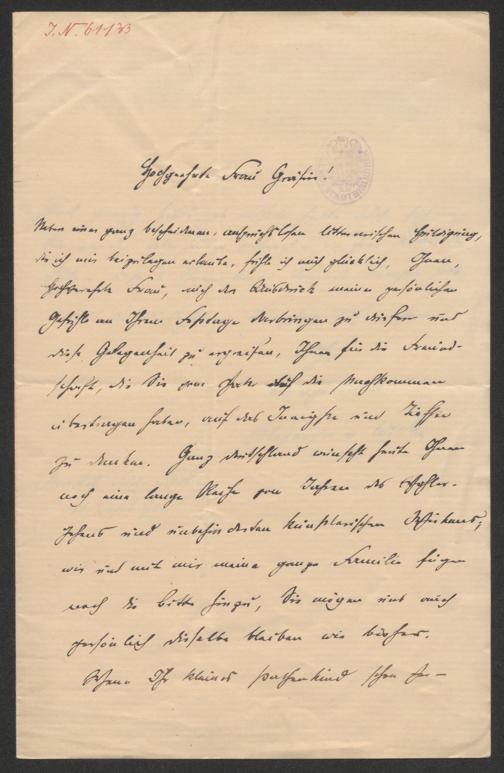 J. N. 61173
Hochgeehrte Frau Gräfin!
Neben einer ganz bescheidenen, anspruchslosen litterarischen Huldigung,
die ich mir beizulegen erlaube, fühle ich mich glücklich, Ihnen,
hochgeehrte Frau, auch den Ausdruck meiner persönlichen
Gefühle an Ihrem Festtage darbringen zu dürfen und
diese Gelegenheit zu ergreifen, Ihnen für die Freund-
schaft, die Sie vom Vater auf die Nachkommen
übertragen haben, auf das Innigste und Tiefste
zu danken. Ganz Deutschland wünscht heute Ihnen
noch eine lange Reihe von Jahren des Wohler-
gehens und unbehinderten künstlerischen Schaffens;
wir und mit mir meine ganze Familie fügen
noch die Bitte hinzu, Sie mögen uns auch
persönlich dieselbe bleiben wie bisher.
Wenn Ihr kleines Pathenkind schon